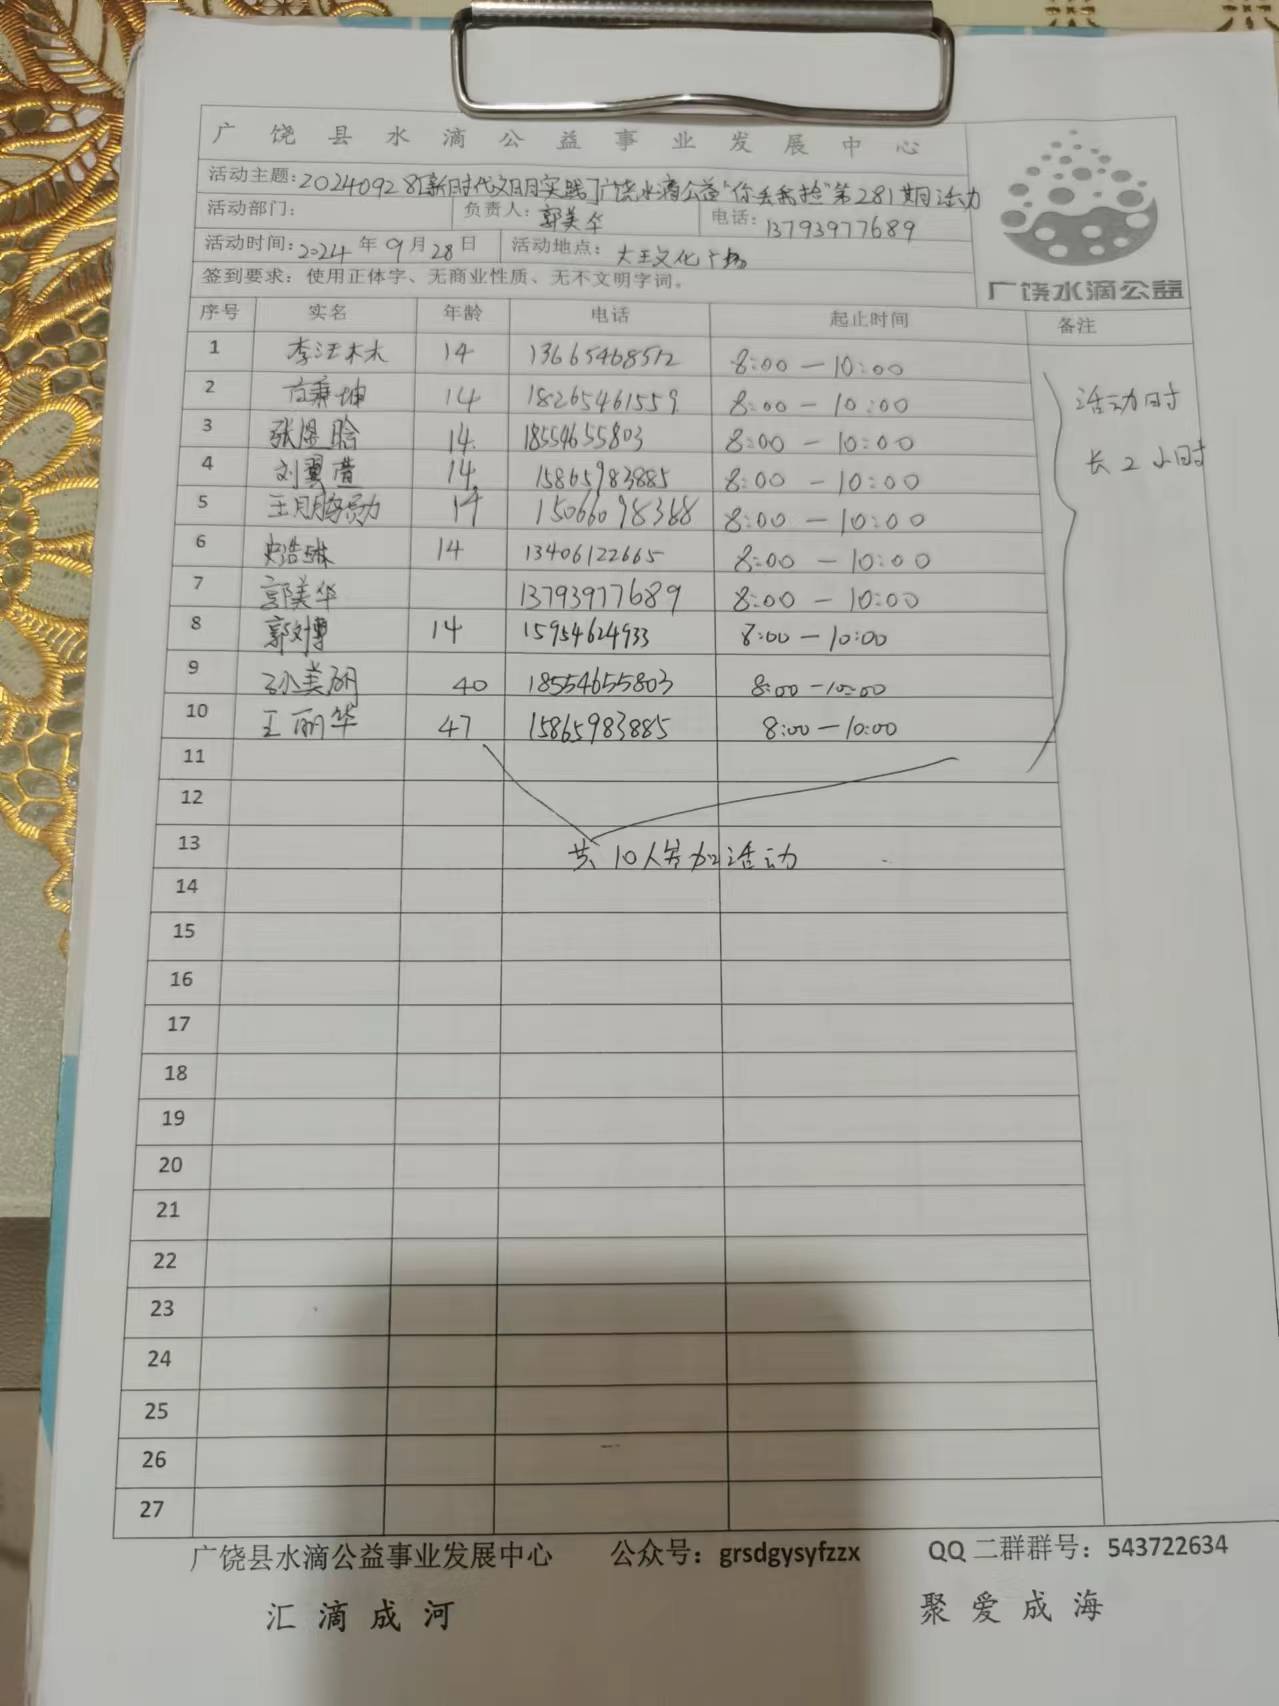 广饶县水滴公益事业发展中心
活动主题:20240928[新时代文明实践]广饶水滴公益"你丢我捡"第281期活动
活动部门: 负责人:郭美华 电话:13793977689
活动时间:2024年09月28日 活动地点:大王文化广场
签到要求:使用正体字、无商业性质、无不文明字词。
广饶水滴公益
序号 实名 年龄 电话 起止时间 备注
1 李汪木木 14 13665468512 8:00—10:00
2 秉坤 14 18265461559 8:00—10:00
3 张 晗 14 18554655803 8:00—10:00
4 刘翼萱 14 15865983885 8:00—10:00
5 王 14 15066098388 8:00—10:00
6 史浩琳 14 13406122665 8:00—10:00
7 郭美华 13793977689 8:00—10:00
8 郭刘博 14 15954624933 8:00—10:00
9 孙美丽 40 18554655803 8:00—10:00
10 王丽华 47 15865983885 8:00—10:00
活动时
长2小时
11
12
13 共10人参加活动
14
15
16
17
18
19
20
21
22
23
24
25
26
27
广饶县水滴公益事业发展中心 公众号:grsdgysyfzzx QQ二群群号:543722634
汇滴成河 聚爱成海